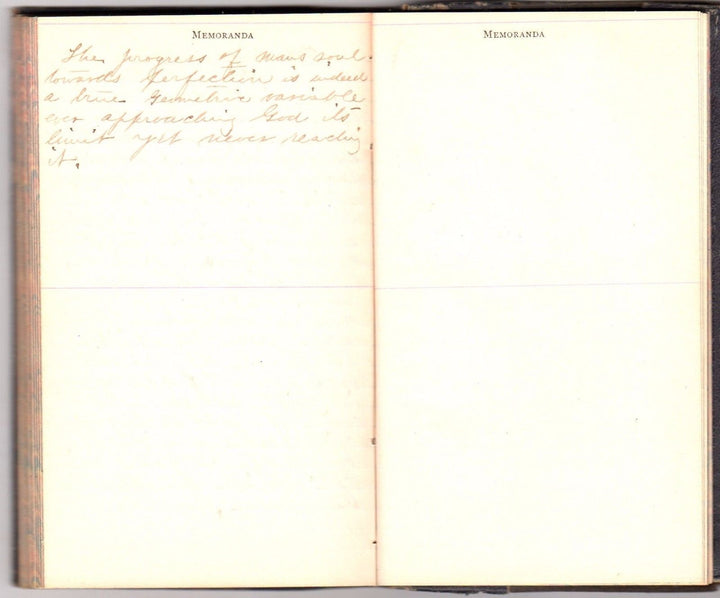 MEMORANDA
The progress of mans soul
towards perfection is indeed
a true Geometric variable
ever approaching God its
limit yet never reaching
it.
MEMORANDA